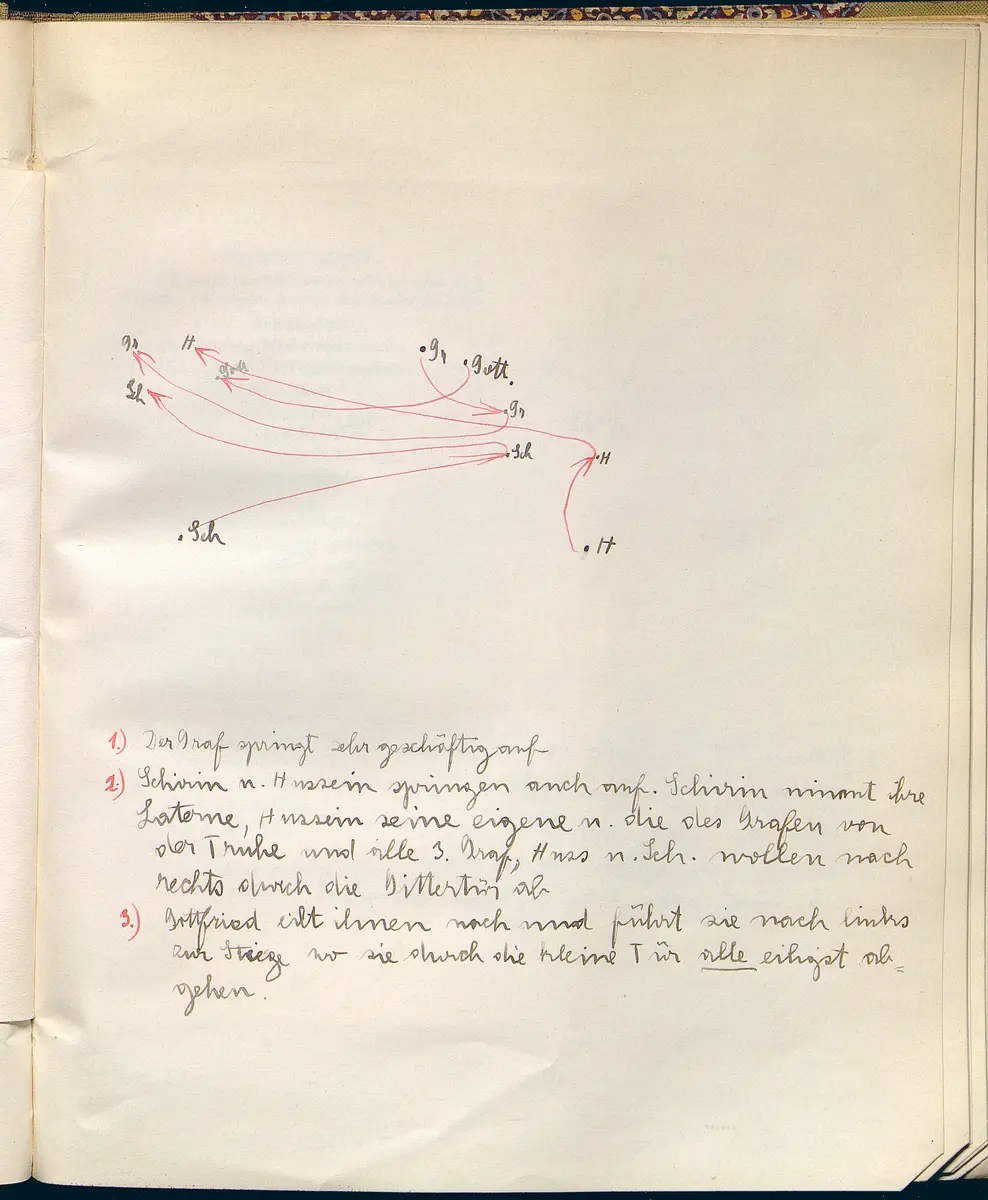 Gr H .Gr .Gott.
Gott
Sch .Gr
.Sch .H
.Sch .H
1.) Der Graf springt sehr geschäftig auf
2.) Schirin u. Hussein springen auch auf. Schirin nimmt ihre
Laterne, Hussein seine eigene u. die des Grafen von
der Truhe und alle 3. Graf, Huss u. Sch. wollen nach
rechts durch die Gittertür ab
3.) Gottfried eilt ihnen nach und führt sie nach links
zur Stiege wo sie durch die kleine Tür alle eiligst ab=
gehen.